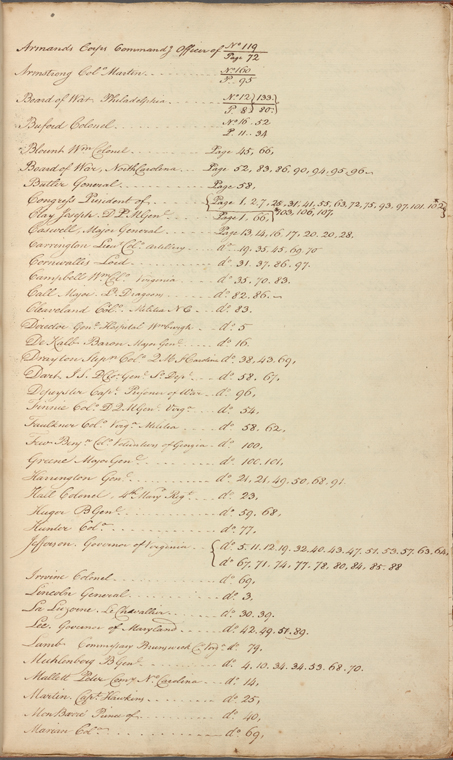 Armands Corps Command.g Officer of No 119 / Page 72
Armstrong Colo. Martin No 160 / P. 95
Board of War Philadelphia No 12 } 133 / P. 8 } 80
Buford Colonel No 16. 52 / P. 11. 34
Blount Wm. Colonel Page 45, 66,
Board of War, North Carolina Page 52, 83, 86, 90, 94, 95, 96
Butler General Page 58,
Congress President of { Page 1, 2, 7, 25, 31, 41, 55, 63, 72, 75, 93, 97, 101, 102
Clay Joseph. D.P.M.Genl. Page 1, 66, 103, 106, 107,
Caswell Major General Page 13, 14, 16, 17, 20, 20, 28.
Carrington Lieut. Colo. Artillery do. 19, 35, 45, 69, 70
Cornwallis Lord do. 31, 37, 86, 97.
Campbell Wm. Colo. Virginia do. 35, 70, 83.
Call Major Lt. Dragoons do. 82, 86.
Cleaveland Colo. Militia N C do. 83.
Director Genl. Hospital Wmburgh do. 5
De Kalb Baron Major Genl. do. 16.
Drayton Stepn. Colo. D.Q.M. S Carolina do. 38, 43, 69,
Dart J.S. D. Cy. Genl. So. Dept. do. 58, 67,
Depeyster Capt. Prisoner of War do. 96,
Finnie Colo. D.Q.M Genl. Virga. do. 54,
Faulkner Colo. Virga. Militia do. 58, 62,
Few Benjn. Colo. Volunteers of Georgia do. 100,
Greene Major Genl. do. 100, 101,
Harrington Genl. do. 21, 21, 49, 50, 68, 91
Hall Colonel 4th. Mary. Regt. do. 23,
Huger B Genl. do. 59, 68,
Hunter Colo. do. 77,
Jefferson, Governor of Virginia { do. 5, 11, 12, 19, 32, 40, 43, 47, 51, 53, 57, 63, 64,
do. 67, 71, 74, 77, 78, 80, 84, 85, 88
Irvine Colonel do. 69,
Lincoln General do. 3.
La Luzerne Le Chevalier do. 30, 39.
Lee, Governor of Maryland do. 42, 49, 51, 89.
Lamb Commissary Brunswick Cy. Virga. do. 79.
Mecklenberg B Genl. do. 4, 10, 34, 34, 53, 68, 70.
Mallett Peter Comy. No. Carolina do. 14,
Martin Capt. Hawkins do. 25,
Mon Barré Prince of do. 40,
Marian Colo. do. 69,